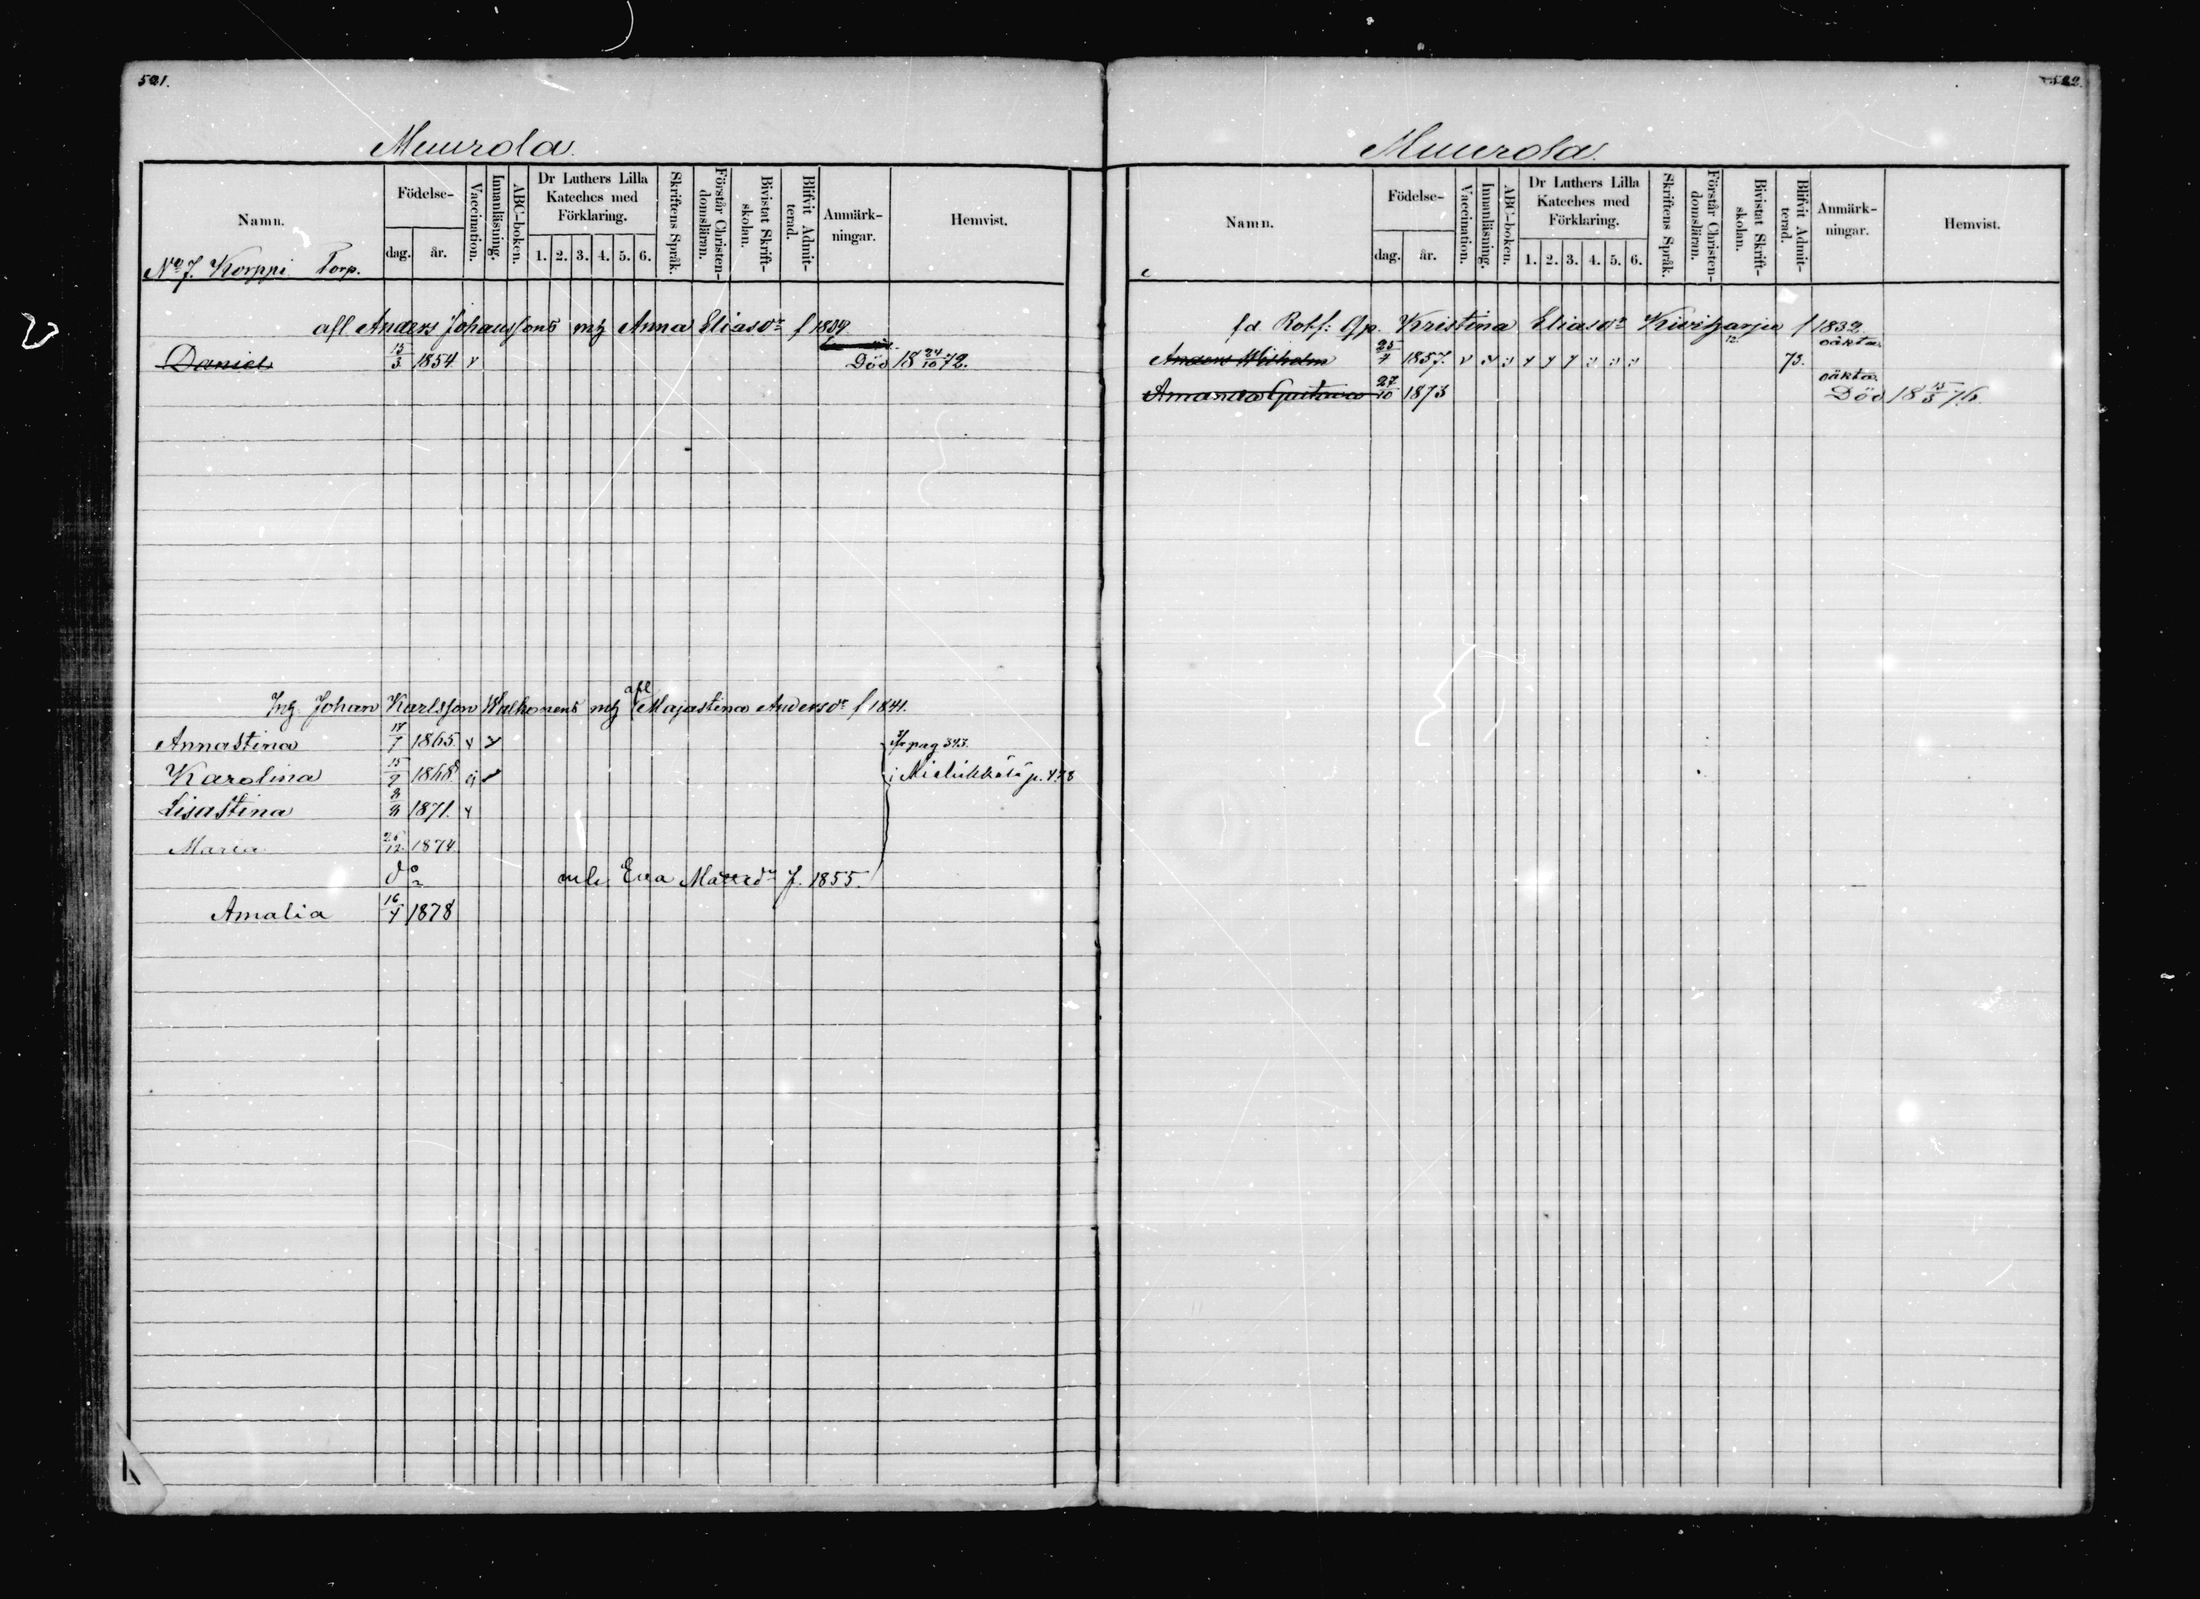 521.
Muurola.
Namn. Födelse- dag. år. Vaccination. Innanläsning. ABC-boken. Dr Luthers Lilla Kateches med Förklaring. 1. 2. 3. 4. 5. 6. Skriftens Språk. Förstår Christendomsläran. Bivistat Skriftskolan. Blifvit Admitterad. Anmärkningar. Hemvist.
No 7. Korppi Torp.
afl Anders Johanssons mh Anna Eliasdr f 1809
Daniel 15/3 1854 Död 18 24/10 72.
Inh. Johan Karlsson Walkonens mh afl Majastina Andersdr f 1841.
Annastina 1865 pag 343.
Karolina 15/9 1868
Lisastina 1871.
Maria 25/12 1874
do Eva f. 1855.
Amalia 16/4 1878
522.
Muurola.
Namn. Födelse- dag. år. Vaccination. Innanläsning. ABC-boken. Dr Luthers Lilla Kateches med Förklaring. 1. 2. 3. 4. 5. 6. Skriftens Språk. Förstår Christendomsläran. Bivistat Skriftskolan. Blifvit Admitterad. Anmärkningar. Hemvist.
fd Kristina Eliasdr Kiviharju f 1832
Anders Wilhelm 25/4 1857. 73. oäkta
Amanda Gustava 27/10 1873 oäkta. Död 18 15/3 76.